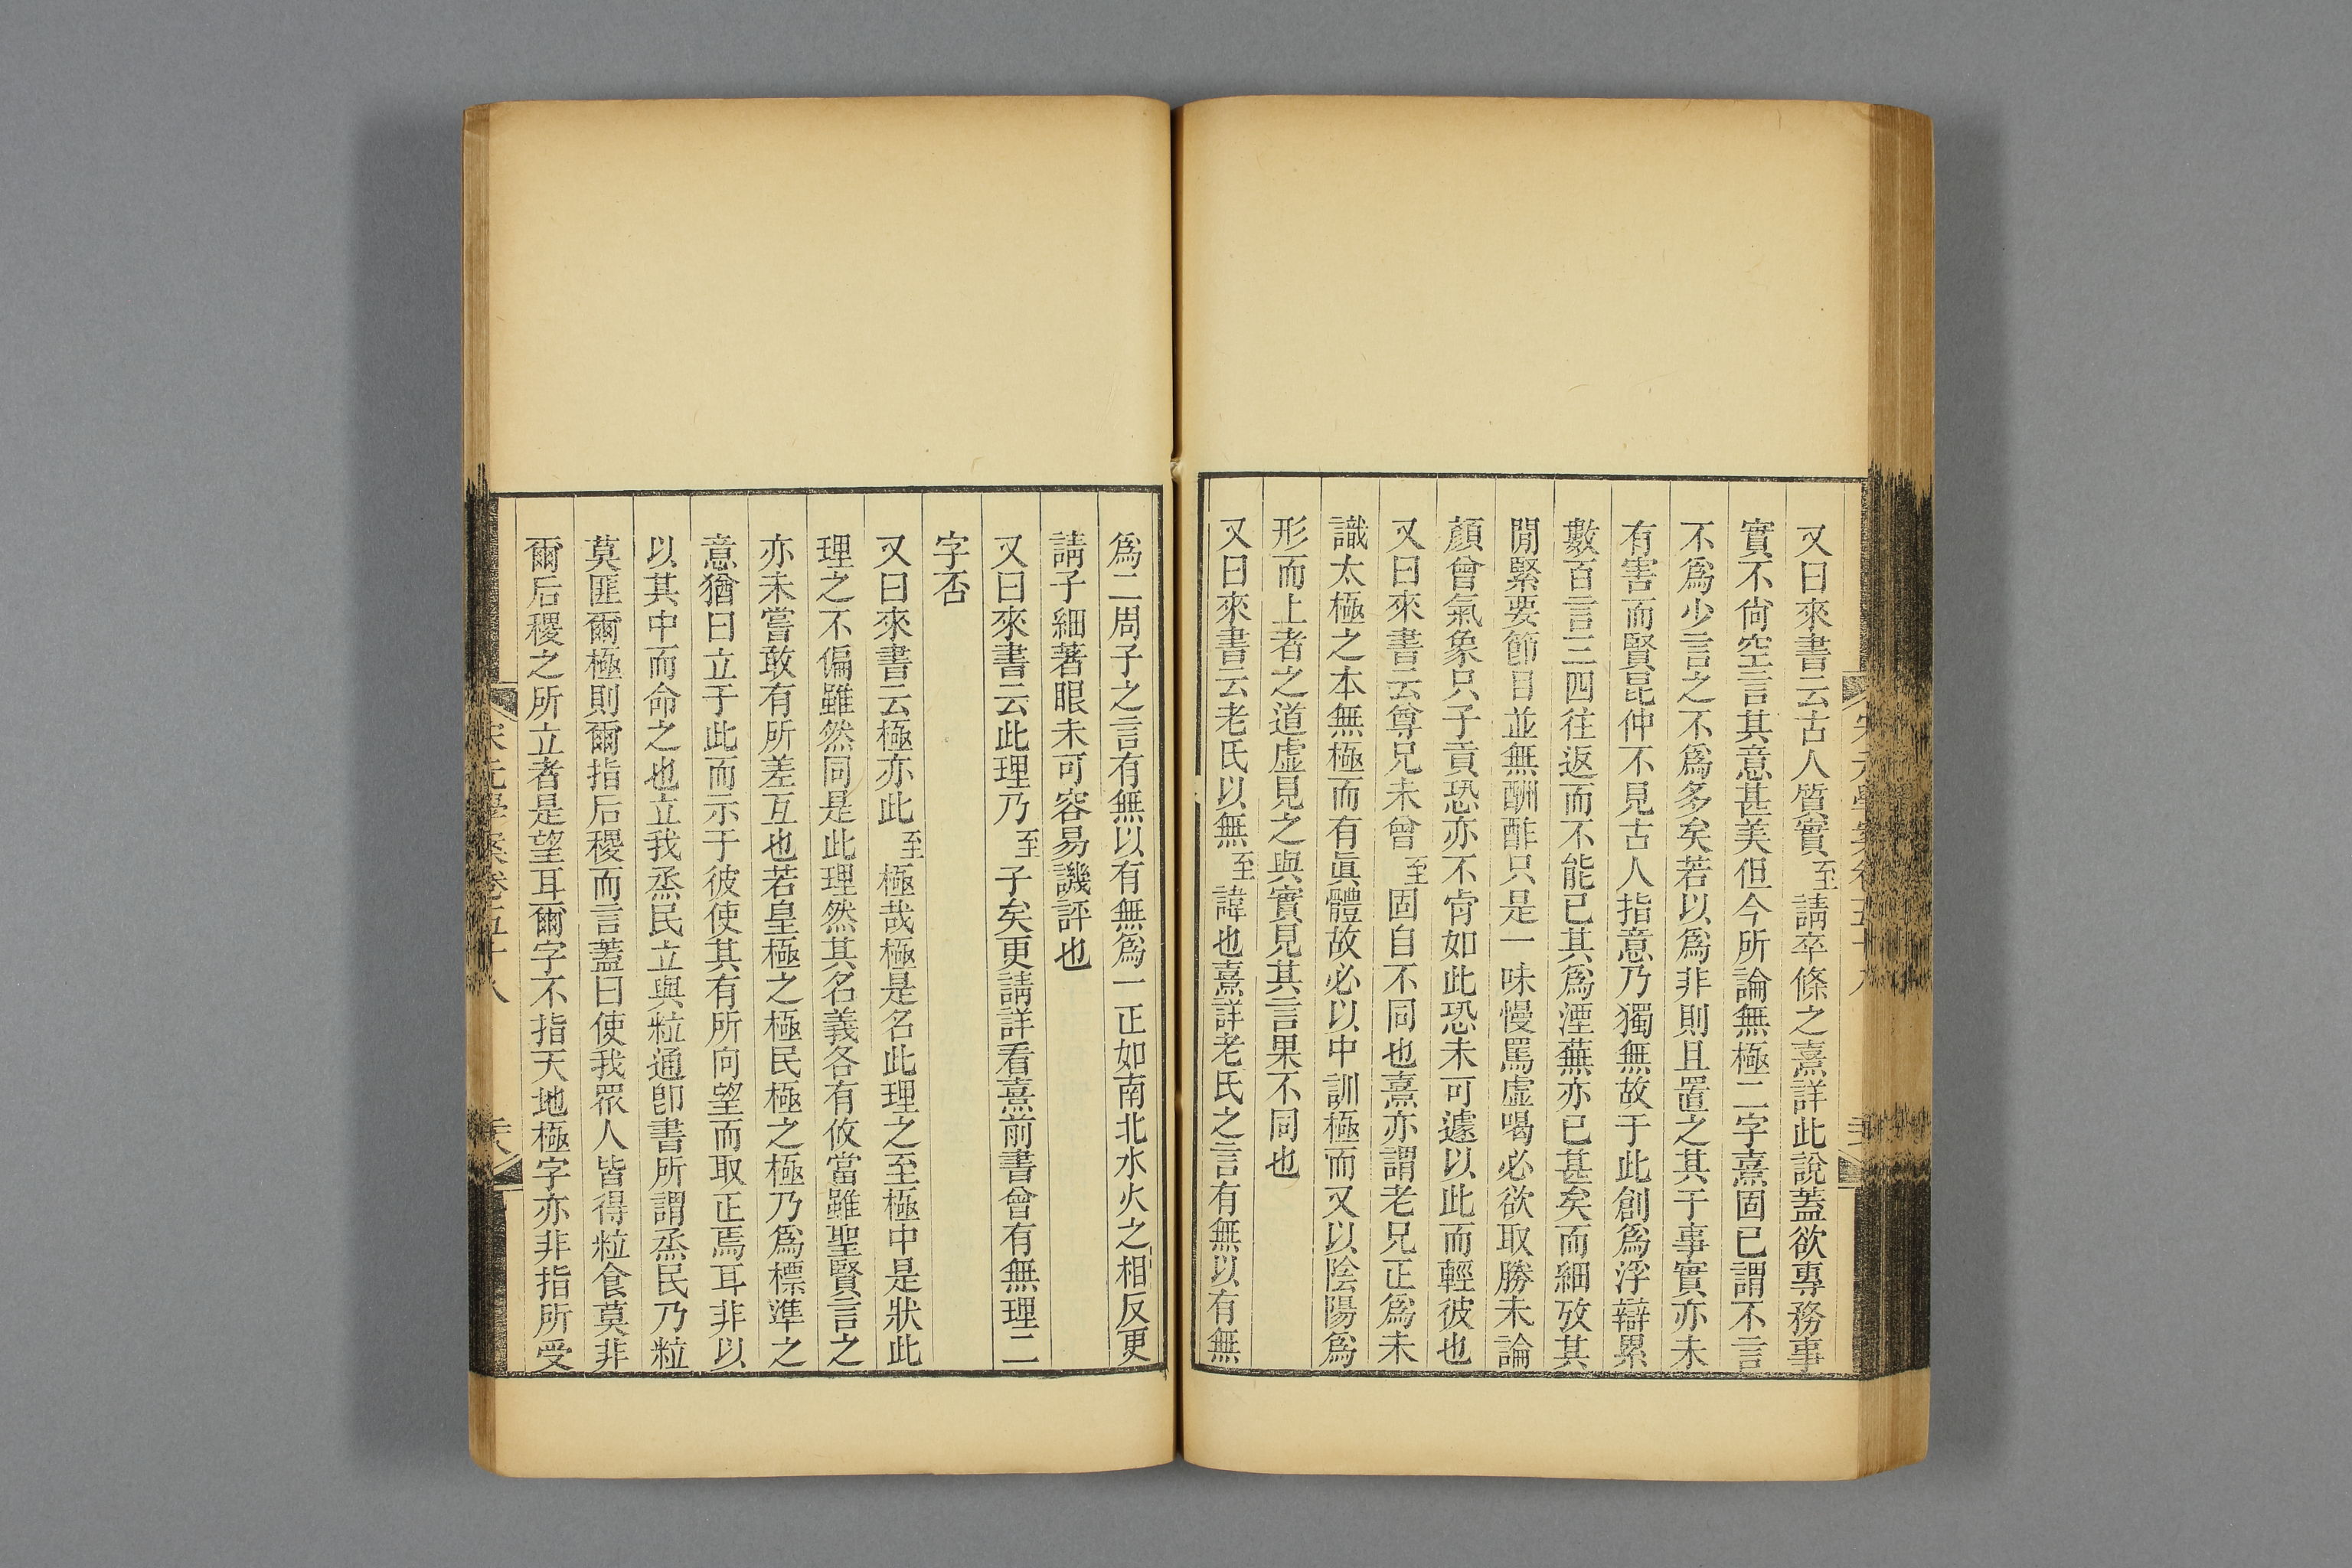 又曰來書云古人質實至請卒條之熹詳此說蓋欲專務事
實不尙空言其意甚美但今所論無極二字熹固已謂不言
不爲少言之不爲多矣若以爲非則且置之其于事實亦未
有害而賢昆仲不見古人指意乃獨無故于此創爲浮辯累
數百言三四往返而不能已其爲湮蕪亦已甚矣而細攷其
閒緊要節目並無酬酢只是一味慢罵虛喝必欲取勝未論
顏曾氣象只子貢恐亦不肯如此恐未可遽以此而輕彼也
又曰來書云尊兄未曾至固自不同也熹亦謂老兄正爲未
識太極之本無極而有眞體故必以中訓極而又以陰陽爲
形而上者之道虛見之與實見其言果不同也
又曰來書云老氏以無至諱也熹詳老氏之言有無以有無
爲二周子之言有無以有無爲一正如南北水火之相反更
請子細著眼未可容易譏評也
又曰來書云此理乃至子矣更請詳看熹前書曾有無理二
字否
又曰來書云極亦此至極哉極是名此理之至極中是狀此
理之不偏雖然同是此理然其名義各有攸當雖聖賢言之
亦未嘗敢有所差互也若皇極之極民極之極乃爲標準之
意猶曰立于此而示于彼使其有所向望而取正焉耳非以
以其中而命之也立我烝民立與粒通卽書所謂烝民乃粒
莫匪爾極則爾指后稷而言蓋曰使我眾人皆得粒食莫非
爾后稷之所立者是望耳爾字不指天地極字亦非指所受
宋元學案卷五十八